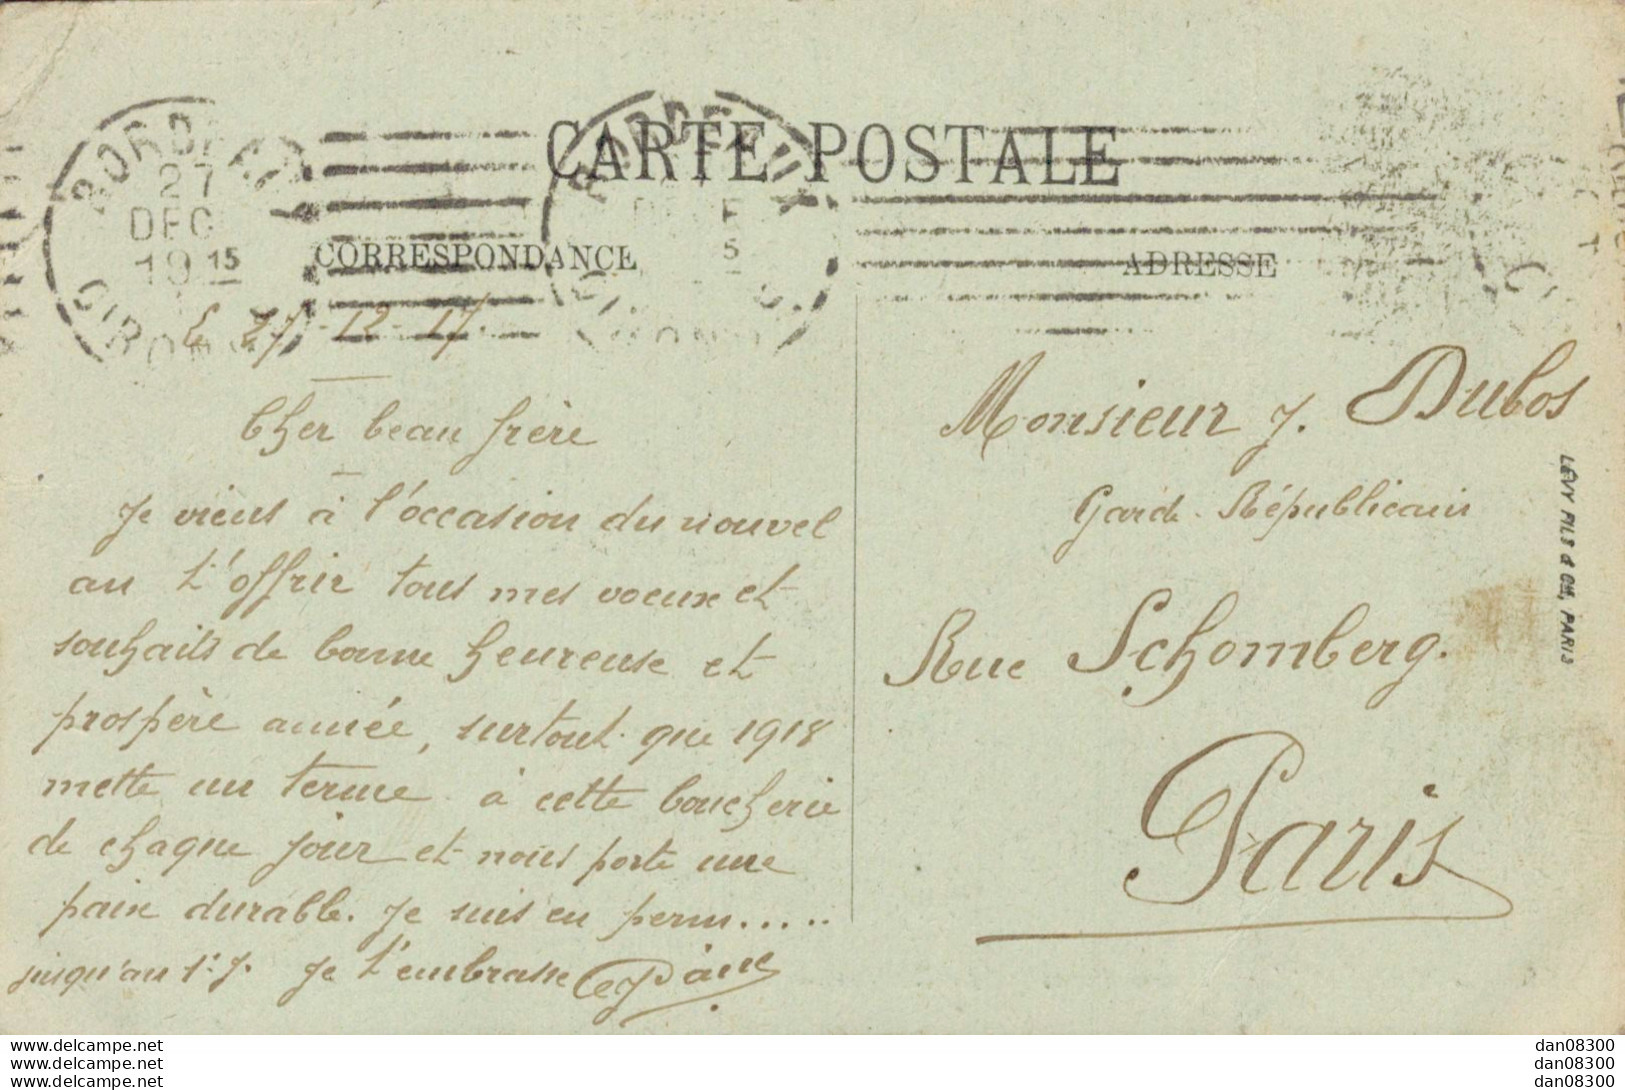 CARTE POSTALE
CORRESPONDANCE
ADRESSE
27
DEC
19 15
27-12-17.
Cher beau frère
Je viens à l'occasion du nouvel
an t'offrir tous mes voeux et
souhaits de bonne heureuse et
prospère année, surtout que 1918
mette un terme à cette boucherie
de chaque jour et nous porte une
paix durable. Je suis en perm.....
jusqu'au 1. J. Je t'embrasse
Monsieur J. Dubos
Garde Républicain
Rue Schomberg.
Paris
LÉVY FILS & Cie, PARIS
www.delcampe.net
www.delcampe.net
www.delcampe.net
dan08300
dan08300
dan08300